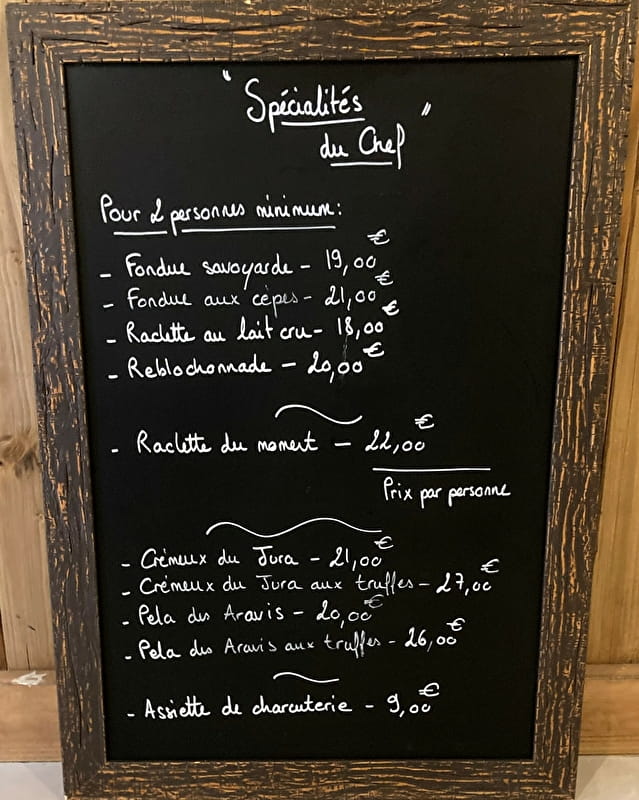 " Spécialités
du Chef "
Pour 2 personnes minimum:
- Fondue savoyarde - 19,00€
- Fondue aux cèpes - 21,00€
- Raclette au lait cru - 18,00€
- Reblochonnade - 20,00€
- Raclette du moment - 22,00€
Prix par personne
- Crémeux du Jura - 21,00€
- Crémeux du Jura aux truffes - 27,00€
- Pela des Aravis - 20,00€
- Pela des Aravis aux truffes - 26,00€
- Assiette de charcuterie - 9,00€